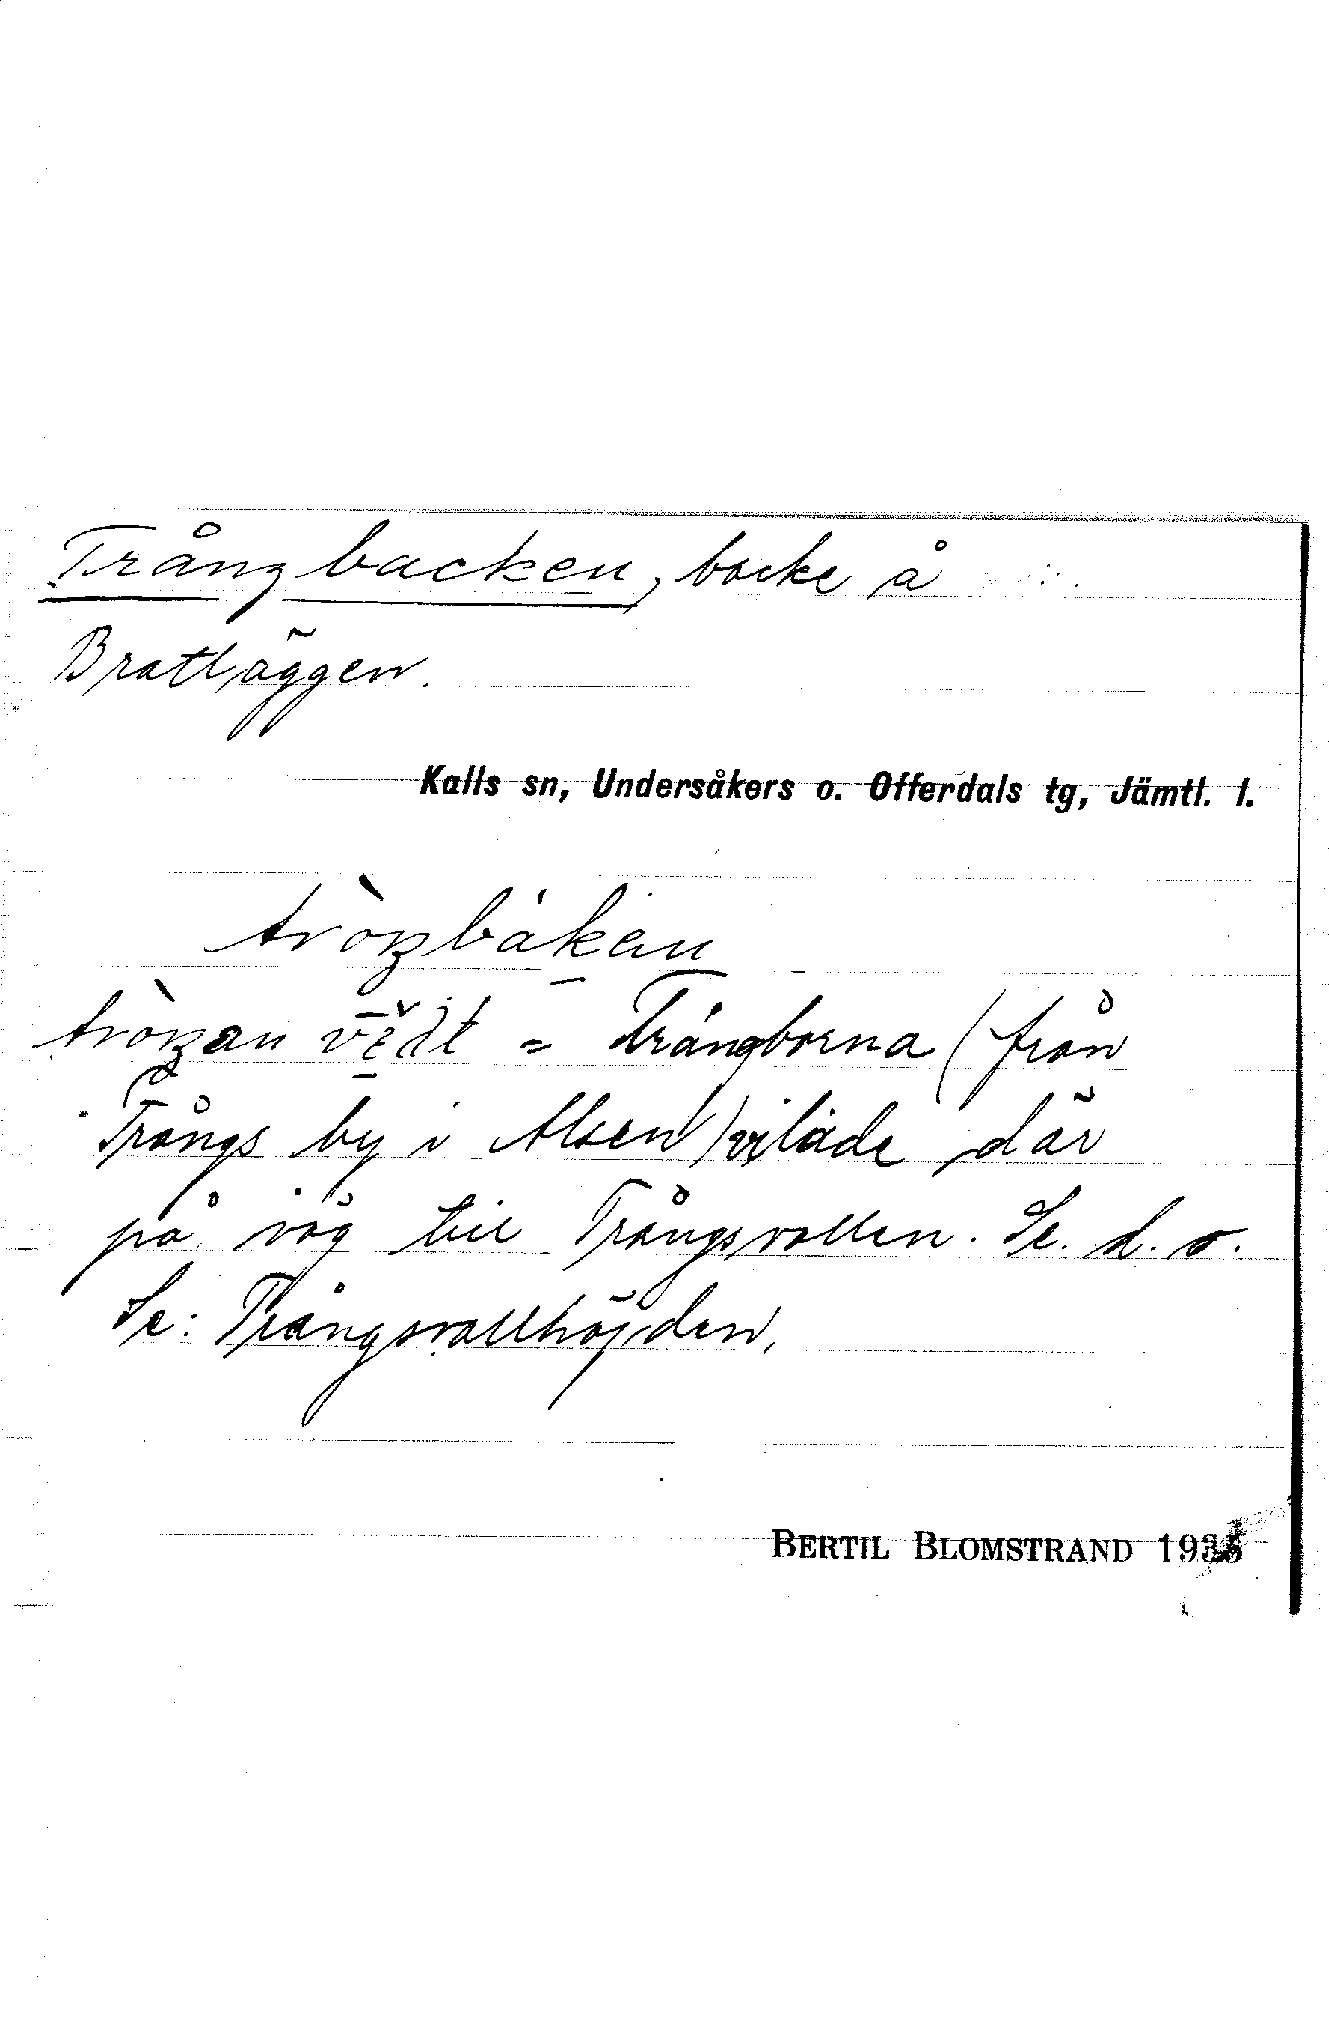 Trångbacken, backe å
Bratläggen.
Kalls sn, Undersåkers o. Offerdals tg, Jämtl. l.
tròŋbákan
tròŋan = Trångborna (från
Trångs by i Alsen) vilade där
på väg till Trångsvallen. Se. d. o.
Se: Trångsvallhöjden,
BERTIL BLOMSTRAND